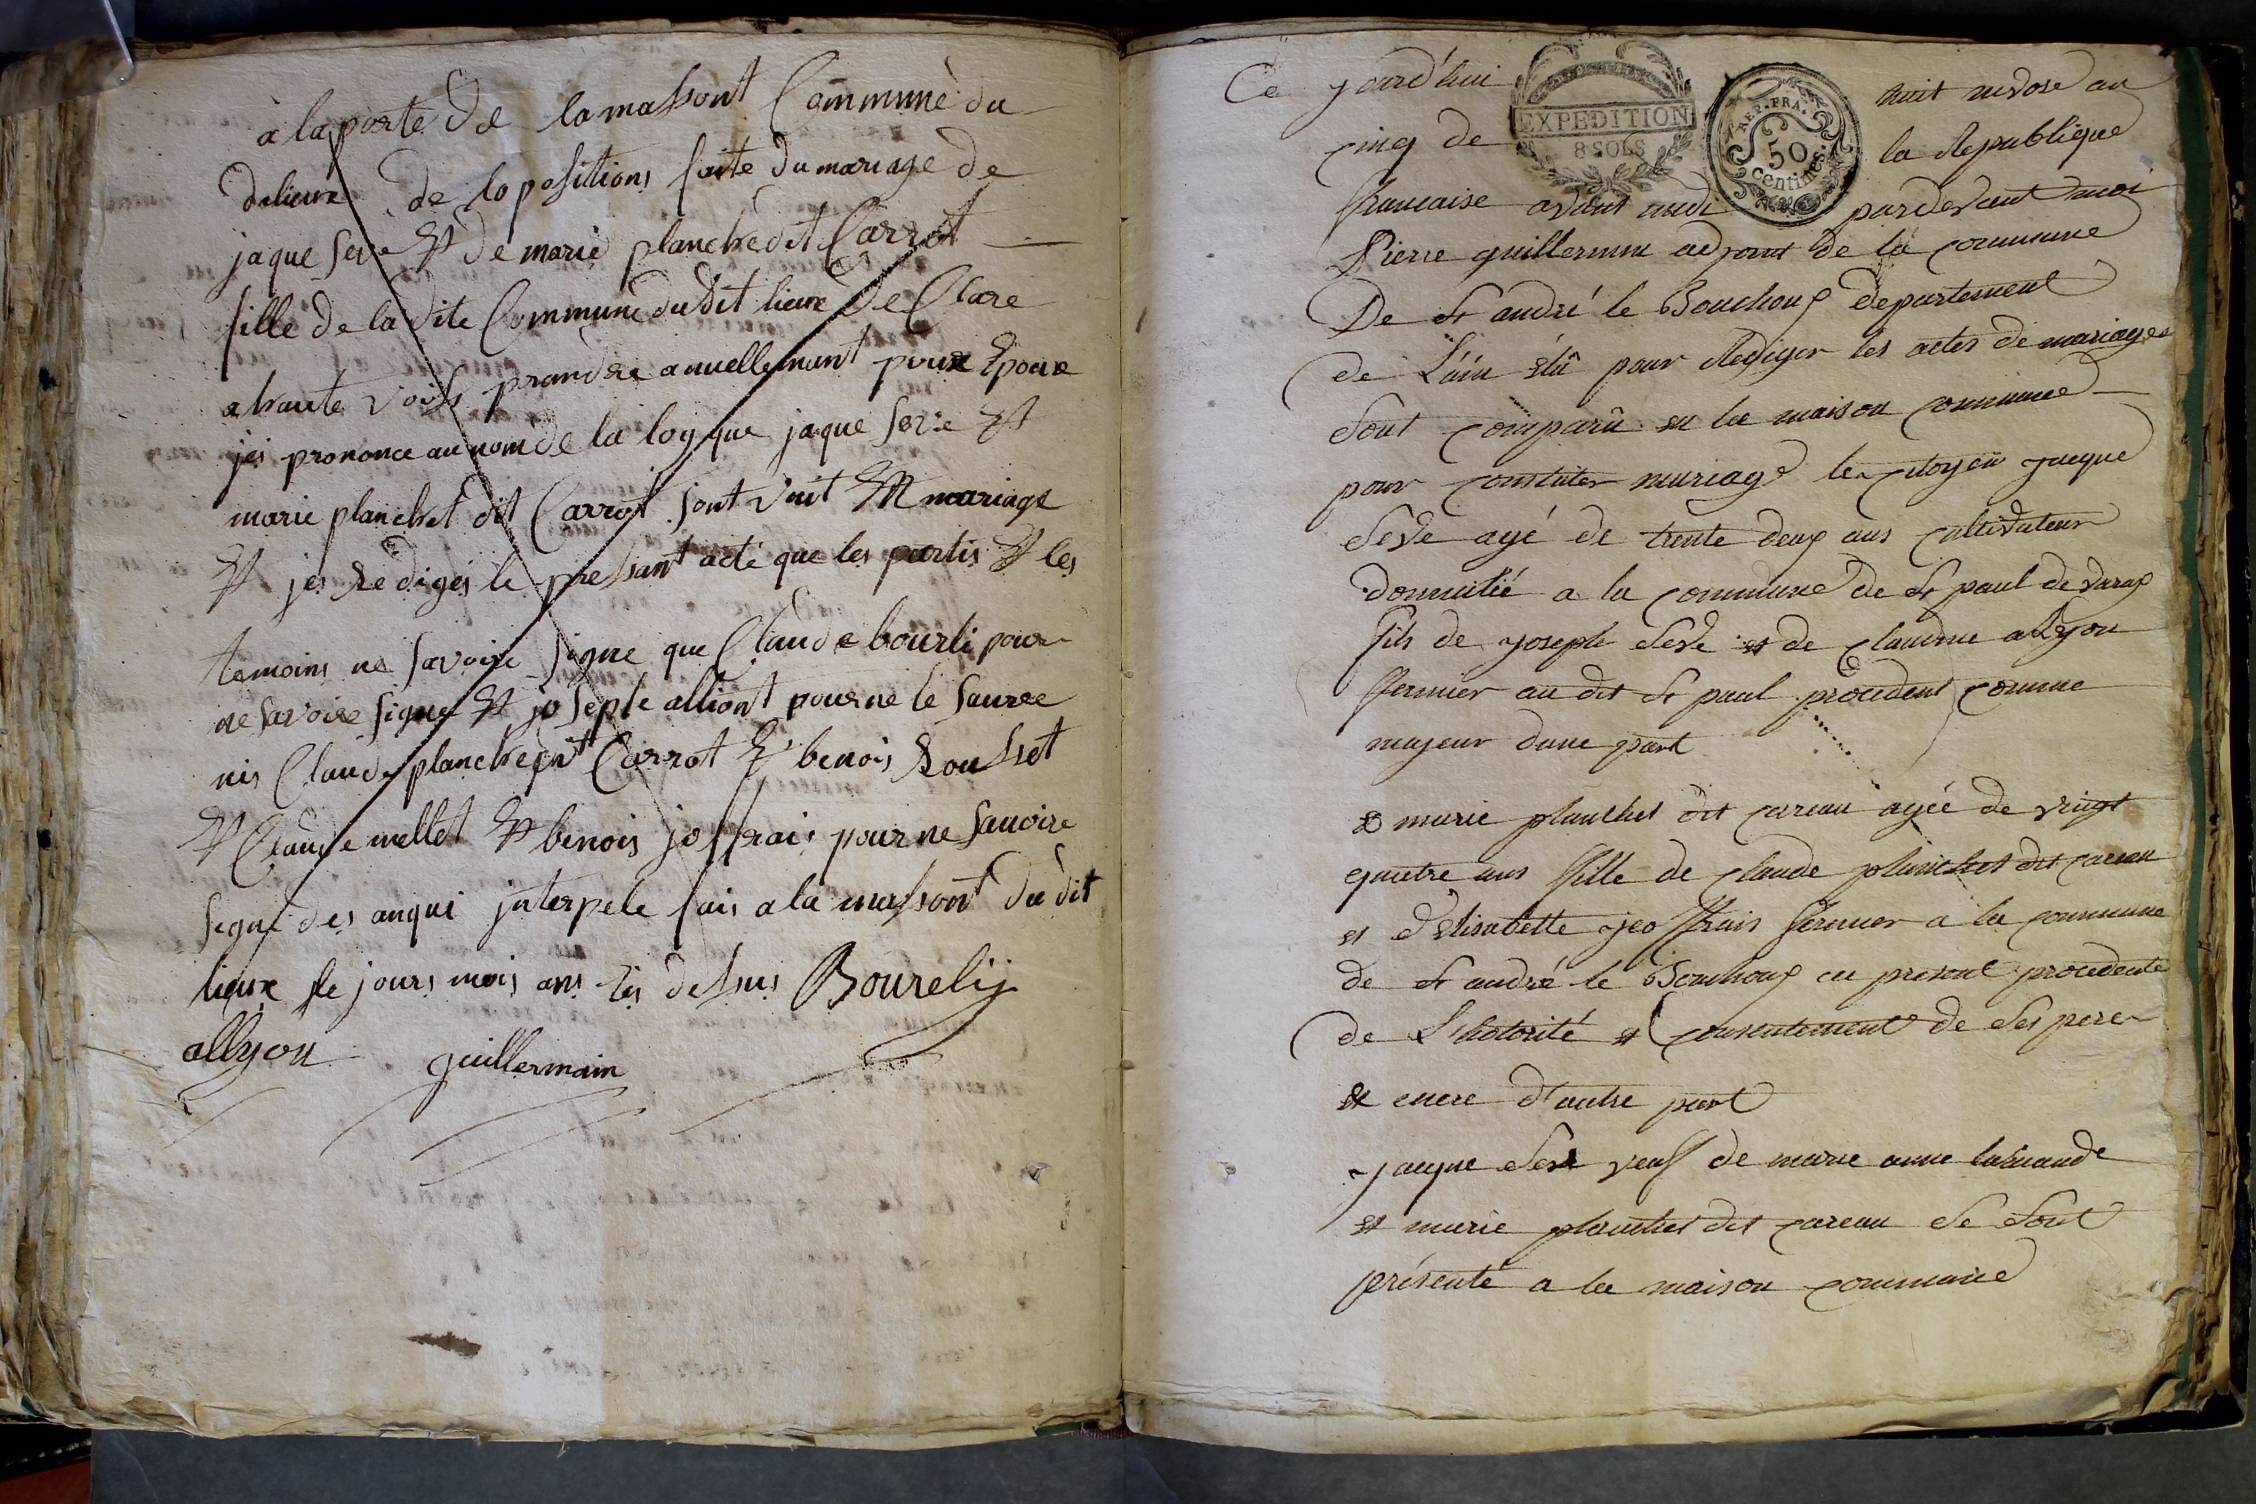 a la porte de la massont Commune du
delieux de lopositions faite du mariage de
jaque seve Et de marie planche dit Carrot
fille de la dite Commune dudit lieux De Clare
a haute vois prandre anuellemant poure Epoux
jei prononce au nom de la loy que jaque seve Et
marie planchet dit Carrot sont vnit En mariage
Et jei Redigéi le pressant acte que les partis Et les
temoins ne savoire signe que Claude bourli pour
ne savoire signe Et joseple alliont pour ne le
nis Claude planche dit Carrot Et benois Rousset
Et Claude mellet Et benois joffrais pour ne savoire
signe des anqui jnterpele fais a la massont du dit
lieux le jours mois ans sis dessus Bourelij
allyon guillermain
Ce jourd'hui huit nivose an
cinq de la Republique
EXPEDITION
8 SOLS
REP. FRA.
50
centimes.
francaise avant midi pardevant moi
Pierre guillermin adjoint de la commune
De st andré le Bouchoux departement
de L'ain élû pour Rediger les actes de mariages
sont comparû en la maison commune
pour constater mariage le citoyen jacque
seve agé de trente deux ans cultivateur
domicilié a la commune de st paul de varax
fils de joseph seve et de claudine allyon
fermier au dit st paul procedent comme
majeur dune part
et marie planchet dit careau agée de vingt
quatre ans fille de claude planchet dit careau
et d'Elisabette jeoffrais fermier a la commune
de st andré le Bouchoux ce present procedente
de L'hotorité et consentement de ses pere
et mere d'autre part
jacque seve veuf de marie anne
et marie planchet dit careau se sont
présenté a la maison commune